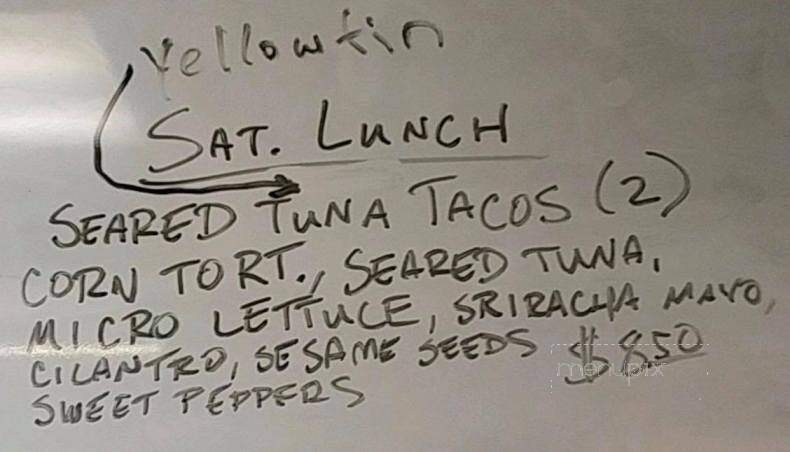 Yellowfin
SAT. LUNCH
SEARED TUNA TACOS (2)
CORN TORT., SEARED TUNA,
MICRO LETTUCE, SRIRACHA MAYO,
CILANTRO, SESAME SEEDS $850
SWEET PEPPERS
menupix